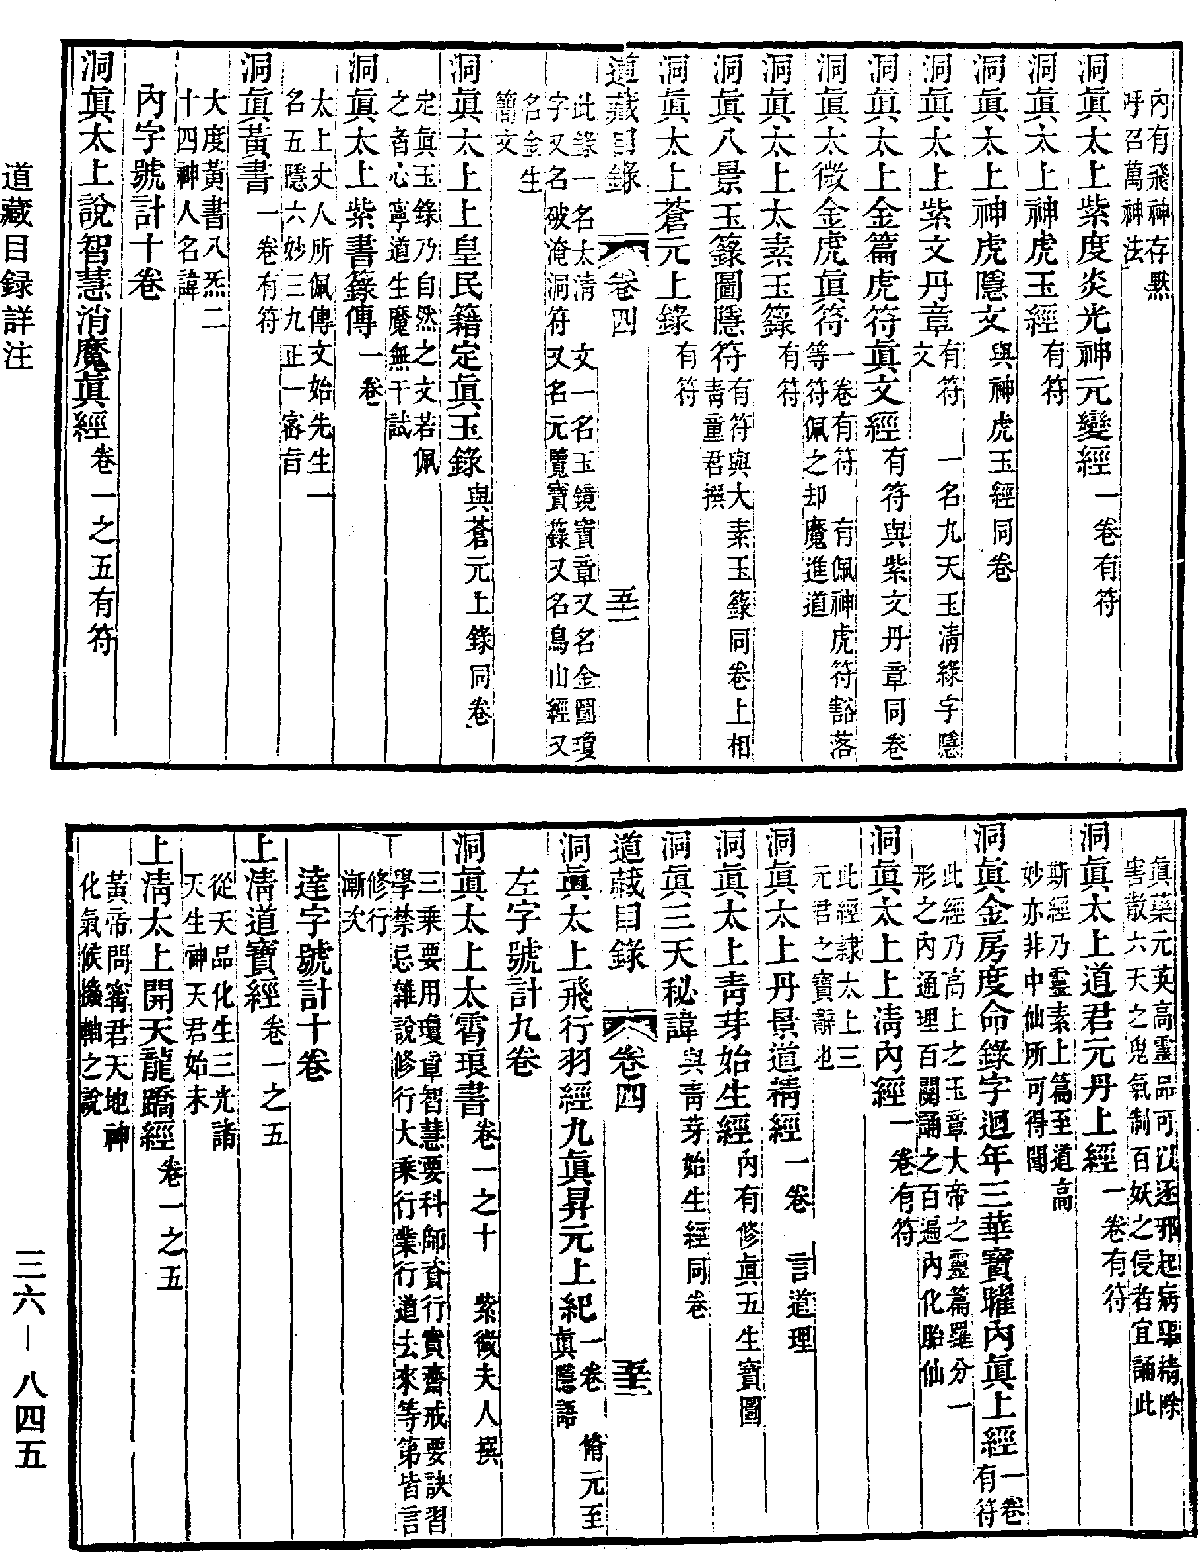 內有飛神存㸃
呼召萬神法
洞眞太上紫度炎光神元變經一卷有符
洞眞太上神虎玉經有符
洞眞太上神虎隱文與神虎玉經同卷
洞眞太上紫文丹章有符　一名九天玉淸綠字隱
文
洞眞太上金篇虎符眞文經有符與紫文丹章同卷
洞眞太微金虎眞符一卷有符　有佩神虎符豁落
等符佩之却魔進道
洞眞太上太素玉籙有符
洞眞八景玉籙圖隱符有符與大素玉籙同卷上相
靑童君撰
洞眞太上蒼元上錄有符
道藏目錄　卷四　五十一
此錄一名太淸　文一名玉鏡寶章又名金圖瓊
字又名破淹洞符　又名元覽寶籙又名鳥山經又
名金生
簡文
洞眞太上上皇民籍定眞玉錄與蒼元上錄同卷
定眞玉錄乃自然之文若佩
之者心寧道生魔無干試
洞眞太上紫書籙傳一卷
太上丈人所佩傳文始先生一
名五隱六妙三九正一密旨
洞眞黃書一卷有符
大度黃書八炁二
十四神人名諱
內字號計十卷
洞眞太上說智慧消魔眞經卷一之五有符
眞藥元英高靈品可以逐邪起病驅精除
害散六天之鬼氣制百妖之侵者宜誦此
洞眞太上道君元丹上經一卷有符
斯經乃靈素上篇至道高
妙亦非中仙所可得聞
洞眞金房度命錄字迴年三華寶曜內眞上經一卷
有符
此經乃高上之玉章大帝之靈篇羅分一
形之內通理百關誦之百遍內化胎仙
洞眞太上上淸內經一卷有符
此經隸太上三
元君之寶辭也
洞眞太上丹景道精經一卷　言道理
洞眞太上靑芽始生經內有修眞五生寶圖
洞眞三天秘諱與靑芽始生經同卷
道藏目錄　卷四　五十二
洞眞太上飛行羽經九眞昇元上紀一卷　脩元至
眞隱語
左字號計九卷
洞眞太上太霄琅書卷一之十　紫微夫人撰
三乘要用瓊章智慧要科師資行實齋戒要訣習
學禁忌雜說修行大乘行業行道去來等第皆言
修行
漸次
達字號計十卷
上淸道寶經卷一之五
從天品化生三光諸
天生神天君始末
上淸太上開天龍蹻經卷一之五
黃帝問甯君天地神
化氣候擒軸之說
道藏目録詳注
三六—八四五